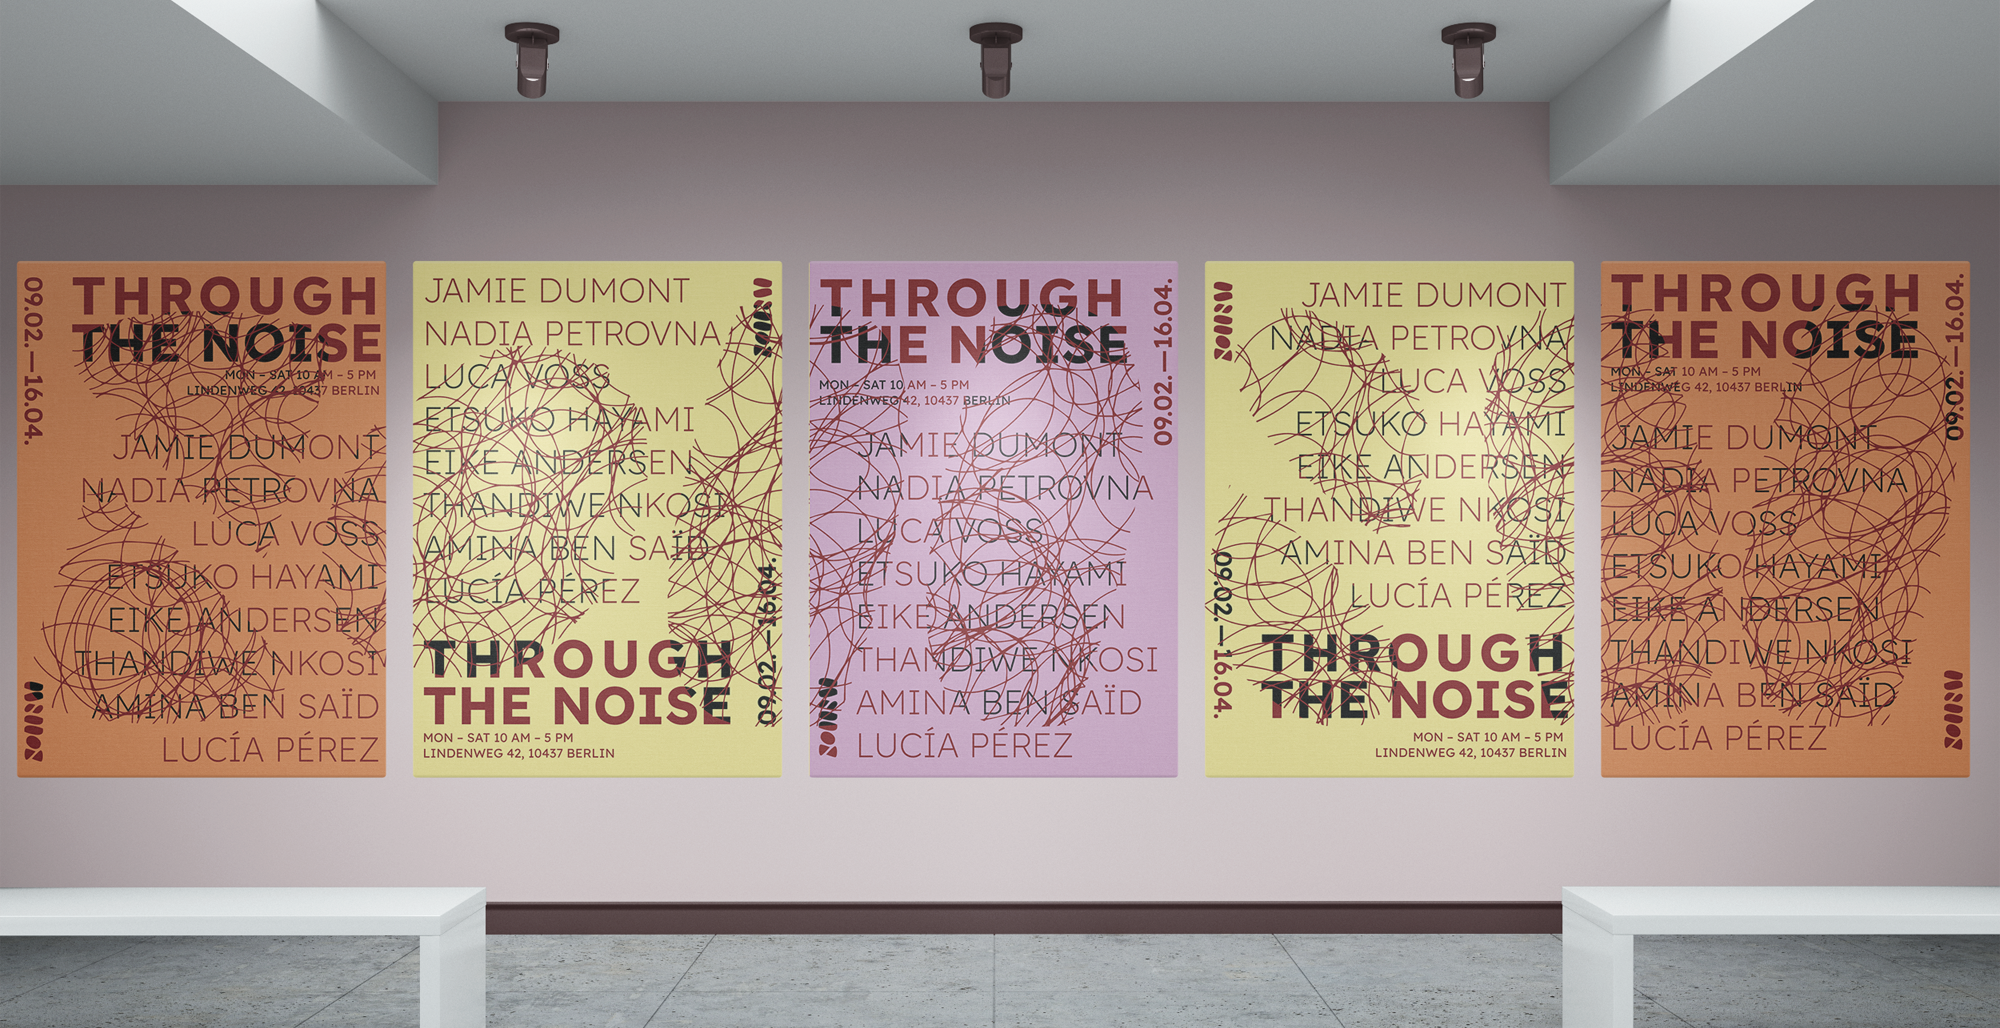 09.02.—16.04.
THROUGH
THE NOISE
MON – SAT 10 AM – 5 PM
LINDENWEG 42, 10437 BERLIN
JAMIE DUMONT
NADIA PETROVNA
LUCA VOSS
ETSUKO HAYAMI
EIKE ANDERSEN
THANDIWE NKOSI
AMINA BEN SAÏD
LUCÍA PÉREZ
JAMIE DUMONT
NADIA PETROVNA
LUCA VOSS
ETSUKO HAYAMI
EIKE ANDERSEN
THANDIWE NKOSI
AMINA BEN SAÏD
LUCÍA PÉREZ
09.02.—16.04.
THROUGH
THE NOISE
MON – SAT 10 AM – 5 PM
LINDENWEG 42, 10437 BERLIN
THROUGH
THE NOISE
09.02.—16.04.
MON – SAT 10 AM – 5 PM
LINDENWEG 42, 10437 BERLIN
JAMIE DUMONT
NADIA PETROVNA
LUCA VOSS
ETSUKO HAYAMI
EIKE ANDERSEN
THANDIWE NKOSI
AMINA BEN SAÏD
LUCÍA PÉREZ
JAMIE DUMONT
NADIA PETROVNA
LUCA VOSS
ETSUKO HAYAMI
EIKE ANDERSEN
THANDIWE NKOSI
AMINA BEN SAÏD
LUCÍA PÉREZ
09.02.—16.04.
THROUGH
THE NOISE
MON – SAT 10 AM – 5 PM
LINDENWEG 42, 10437 BERLIN
THROUGH
THE NOISE
09.02.—16.04.
MON – SAT 10 AM – 5 PM
LINDENWEG 42, 10437 BERLIN
JAMIE DUMONT
NADIA PETROVNA
LUCA VOSS
ETSUKO HAYAMI
EIKE ANDERSEN
THANDIWE NKOSI
AMINA BEN SAÏD
LUCÍA PÉREZ